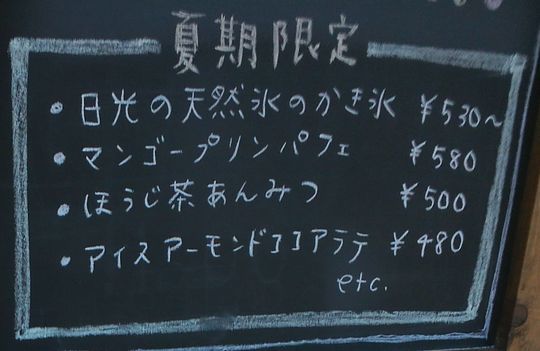 夏期限定
・日光の天然氷のかき氷 ¥530〜
・マンゴープリンパフェ ¥580
・ほうじ茶あんみつ ¥500
・アイスアーモンドココアラテ ¥480
etc.